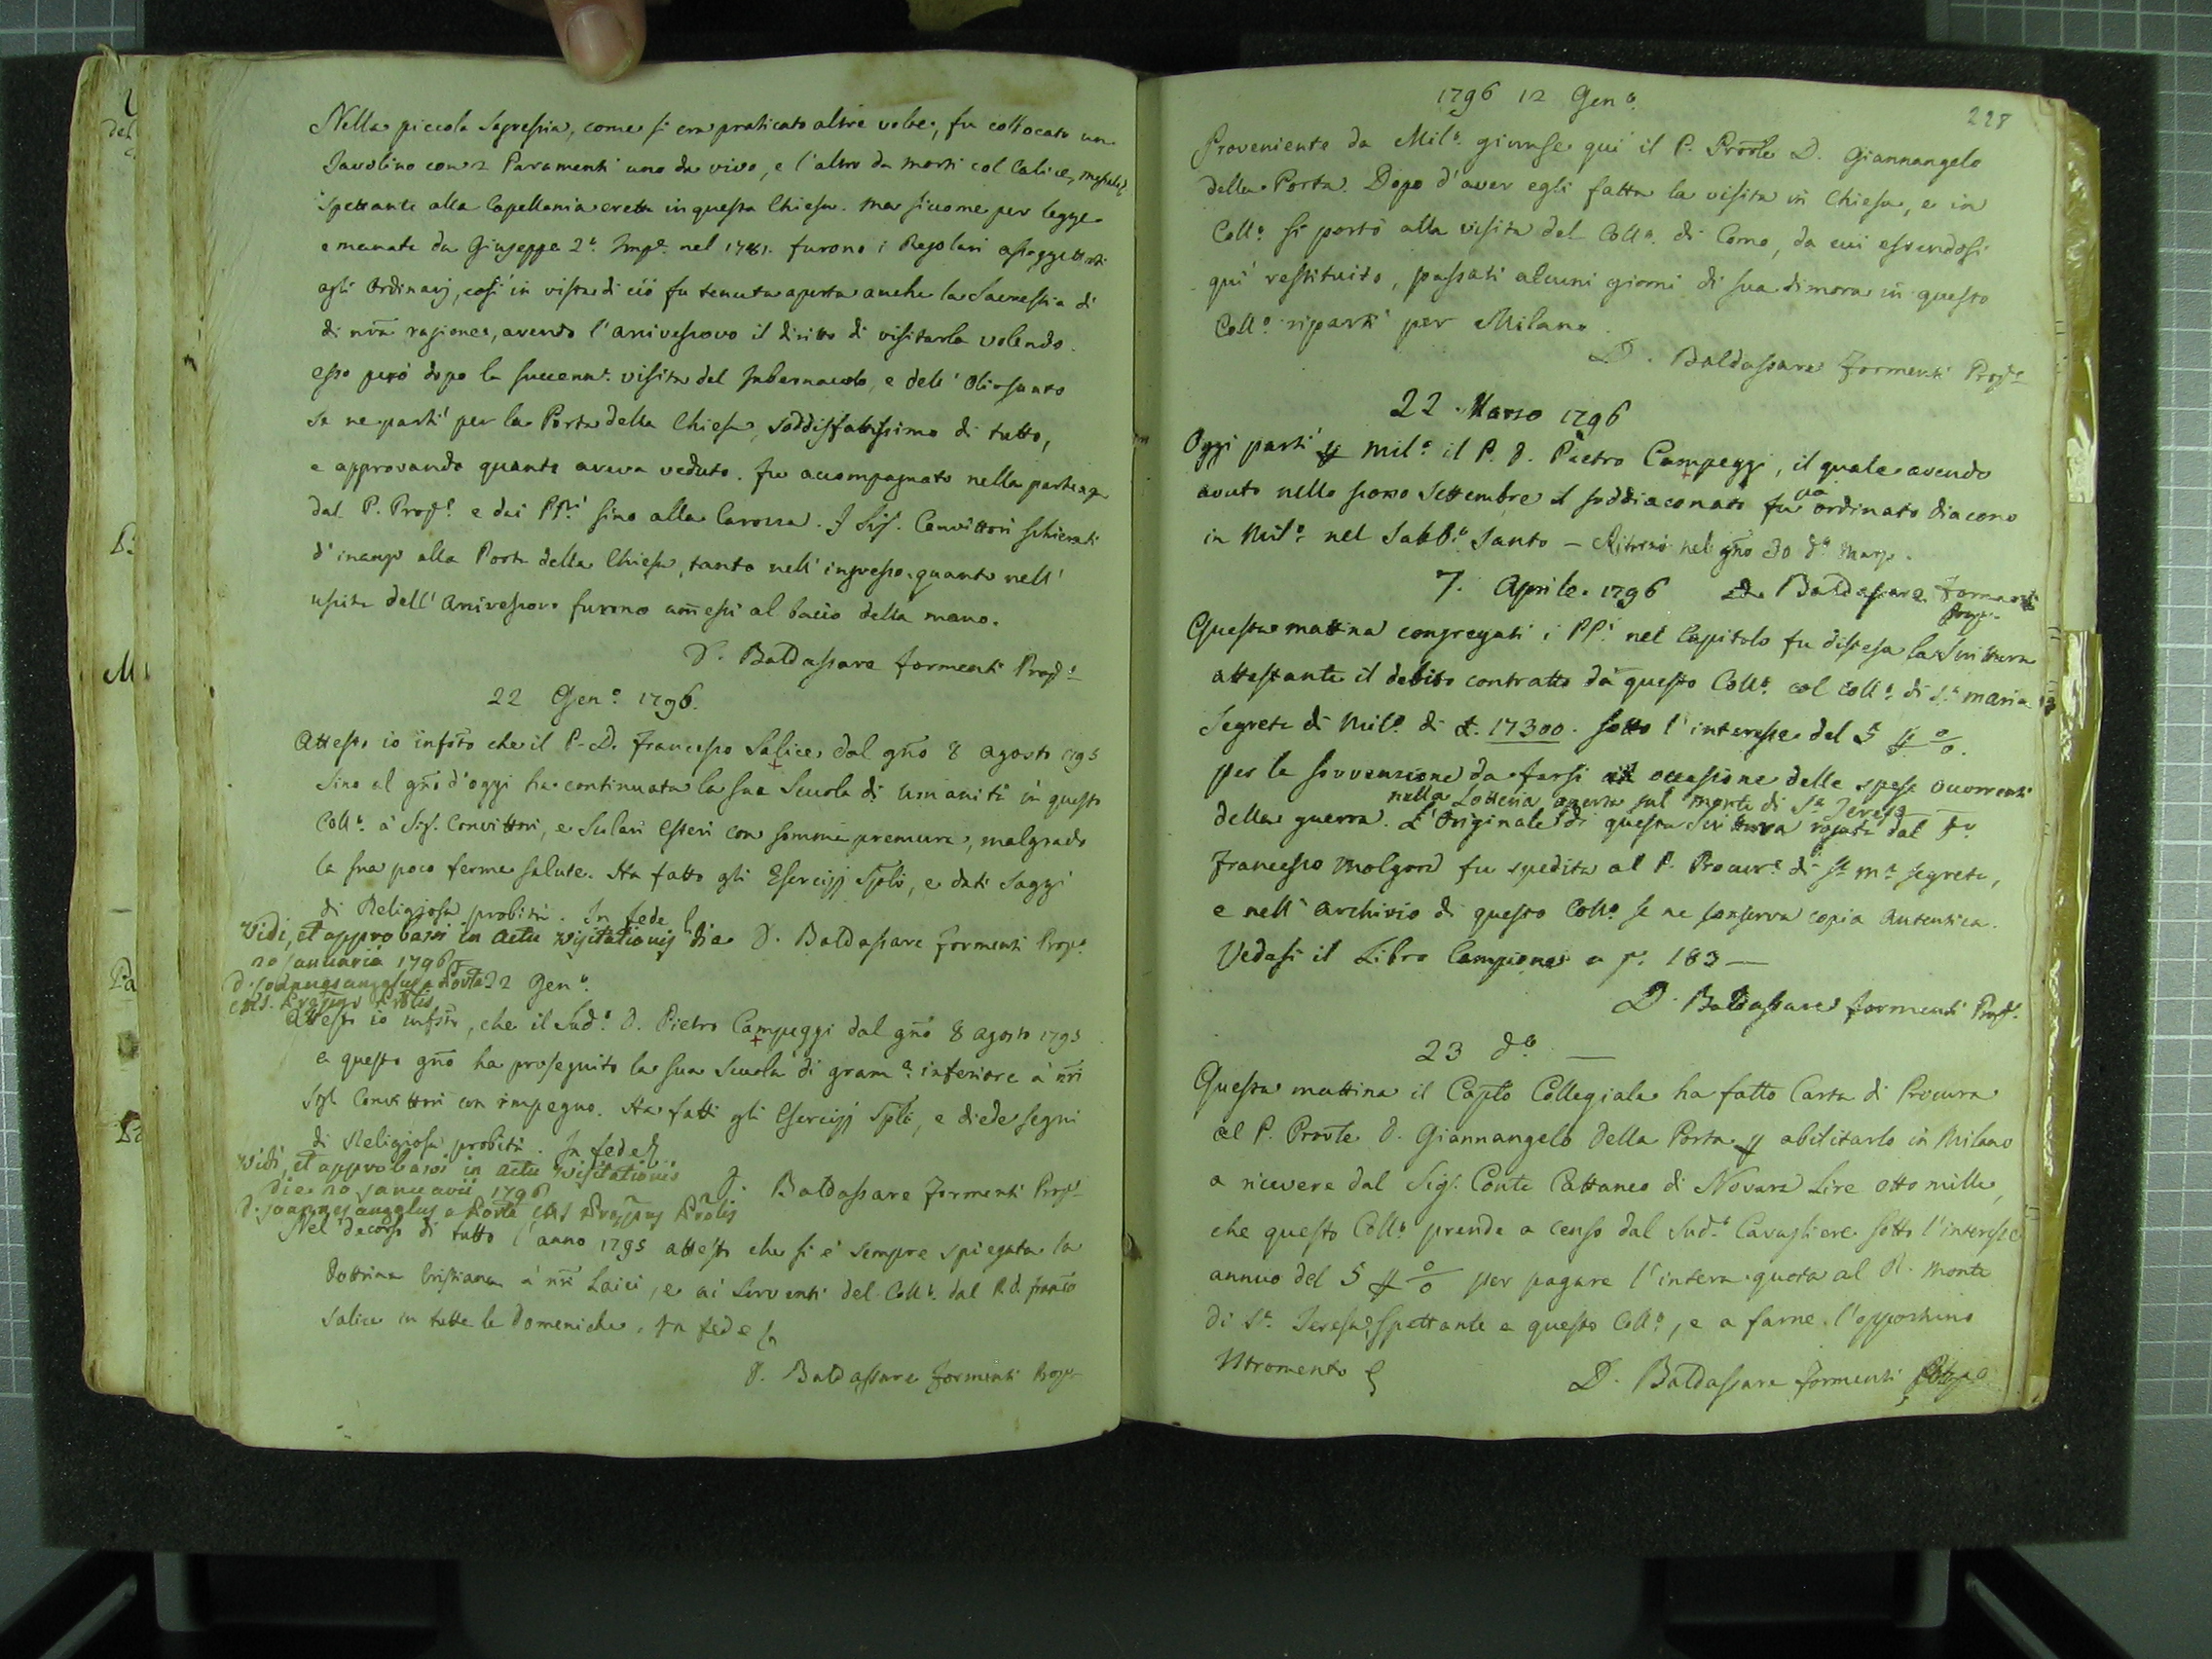 Nella piccola Sagrestia, come si era praticato altre volte, fu collocato un
Tavolino con 2 Paramenti uno da vivo, e l'altro da morti col Calice, messale
spettante alla Capellania eretta in questa Chiesa. Ma siccome per legge
emanata da Giuseppe 2º. Impe. nel 1781. furono i Regolari assoggettati
agli Ordinarj, così in vista di ciò fu tenuta aperta anche la Sacrestia di
di nrã ragione, avendo l'Arcivescovo il diritto di visitarla volendo.
esso però dopo la visita del Tabernacolo, e dell'Olio santo
se ne partì per la Porta della Chiesa, soddisfattissimo di tutto,
e approvando quanto aveva veduto. fu accompagnato nella partenza
dal P. Propo. e dai PP.i sino alla Carozza. I Sig. Convittori schierati
d'inanzi alla Porta della Chiesa, tanto nell'ingresso quanto nell'
uscita dell'Arcivescovo furono am̃essi al bacio della mano.
D. Baldassare Formenti Propo.
22 Gen.o 1796.
Attesto io infrõ che il P. D. Francesco Salice dal gnõ 8 Agosto 1795
sino al gnõ d'oggi ha continuata la sua Scuola di Umanità in questo
Coll.o a' Sig. Convittori, e Scolari esteri con somma premura, malgrado
la sua poco ferma salute. Ha fatto gli Esercizj Splĩ, e dati saggi
di Religiosa probità. In fede
Vidi, et approbavi in actu visitationis die D. Baldassare Formenti Propo.
20 Januaria 1796
D. Joannes angelus a Porta 22 Gen.o
Prõlis
Attesto io infrõ, che il Sud.o D. Pietro Campeggi dal gnõ 8 Agosto 1795
a questo gnõ ha proseguito la sua Scuola di gram.a inferiore a' nrĩ
Sig. Convittori con impegno. Ha fatti gli Esercizj Splĩ, e diede segni
di Religiosa probità. In fede
Vidi, et approbavi in actu visitationis
die 20 Januarii 1796 D. Baldassare Formenti Propo.
D. Joannes angelus a Porta Prõlis
Nel decorso di tutto l'anno 1795 attesto che si è sempre spiegata la
Dottrina Cristiana a' nrĩ Laici, e ai Serventi del Coll.o dal P. D. Franco
Salice in tutte le Domeniche. In fede
D. Baldassare Formenti Propo.
228
1796 12 Gen.o
Proveniente da Mil.o giunse qui il P. Provle D. Giannangelo
della Porta. Dopo d'aver egli fatta la visita in Chiesa, e in
Coll.o si portò alla visita del Coll.o di Como, da cui essendosi
quì restituito, passati alcuni giorni di sua dimora in questo
Coll.o ripartì per Milano.
D. Baldassare Formenti Propo.
22 Marzo 1796
Oggi partì p Mil.o il P. D. Pietro Campeggi, il quale avendo
avuto nello scorso Settembre il soddiaconato fu ordinato Diacono
in Mil.o nel Sabb.o Santo - Ritornò nel gnõ 30 d.o Marzo.
7. Aprile 1796 D. Baldassare Formenti
Propo.
Questa mattina congregati i PP.i nel Capitolo fu distesa la Scrittura
attestante il debito contratto da questo Coll.o col Coll.o di S.a Maria
Segreta di Mil.o di £. 17300. sotto l'interesse del 5 p %.
per la sovvenzione da farsi occasione delle spese occorrenti
nella Lotteria aperta sul monte di S.a Teresa
della guerra. L'Originale di questa Scrittura rogata dal Dr.
Francesco Molgora fu spedita al P. Procur.e di S.a M.a Segreta,
e nell'Archivio di questo Coll.o se ne conserva copia autentica.
Vedasi il Libro Campione a p. 183 —
D. Baldassare Formenti Propo.
23 d.o —
Questa mattina il Caplõ Collegiale ha fatto Carta di Procura
al P. Provle D. Giannangelo Della Porta p abilitarlo in Milano
a ricevere dal Sig. Conte Cattaneo di Novara Lire otto mille,
che questo Coll.o prende a censo dal Sud.o Cavagliere sotto l'interesse
annuo del 5 p % per pagare l'intera quota al R. Monte
di S.a Teresa, spettante a questo Coll.o, e a farne l'opportuno
Istromento
D. Baldassare Formenti Propo.